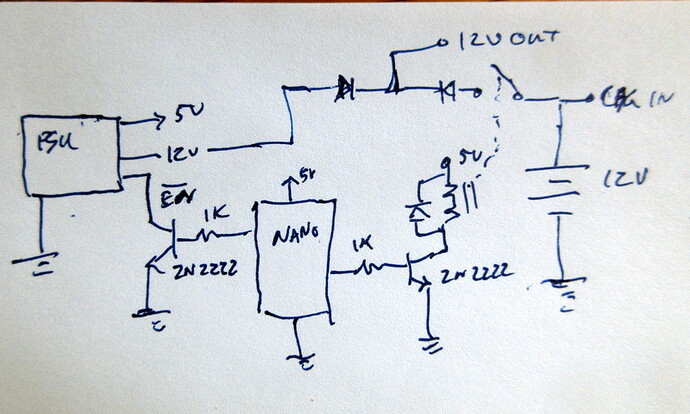 12V OUT
5V
PSU
12V
IN
EN
5V
12V
5V
1K
NANO
1K
2N2222
2N2222